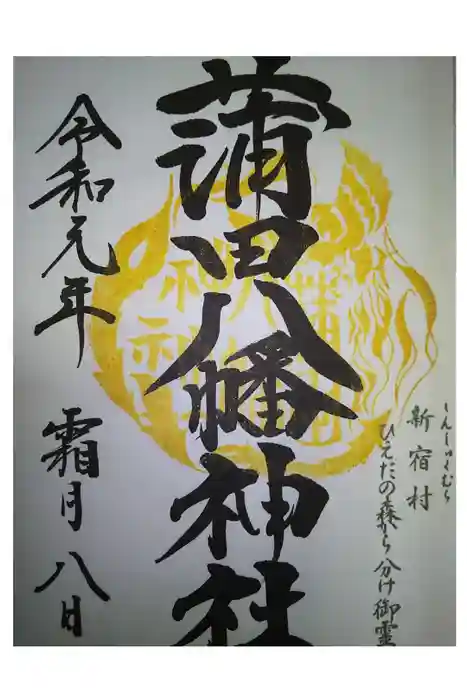 しんしゅくむら
新宿村
ひえだの森から分け御霊
蒲田八幡神社
令和元年
霜月八日